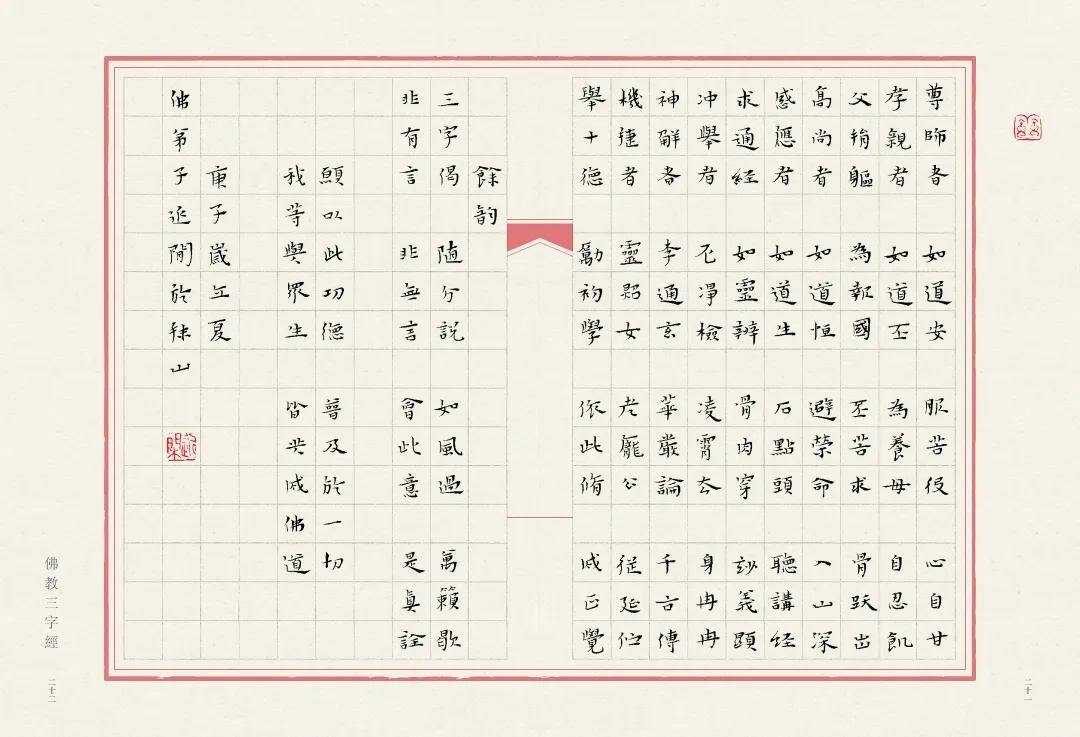 尊師者 如道安 服苦役 心自甘
孝親者 如道丕 為養母 自忍飢
父捐軀 為報國 丕苦求 骨躍出
高尚者 如道恒 避榮命 入山深
感應者 如道生 石點頭 聽講經
求通經 如靈辨 骨肉穿 妙義顯
冲舉者 尼淨檢 凌霄去 身冉冉
神解者 李通玄 華嚴論 千古傳
機捷者 靈照女 老龐公 從延佇
舉十德 勵初學 依此脩 成正覺
二十一
餘韵
三字偈 隨分說 如風過 萬籟歇
非有言 非無言 會此意 是真詮
願以此功德 普及於一切
我等與眾生 皆共成佛道
庚子歲立夏
佛弟子閒於山
佛教三字經
二十二